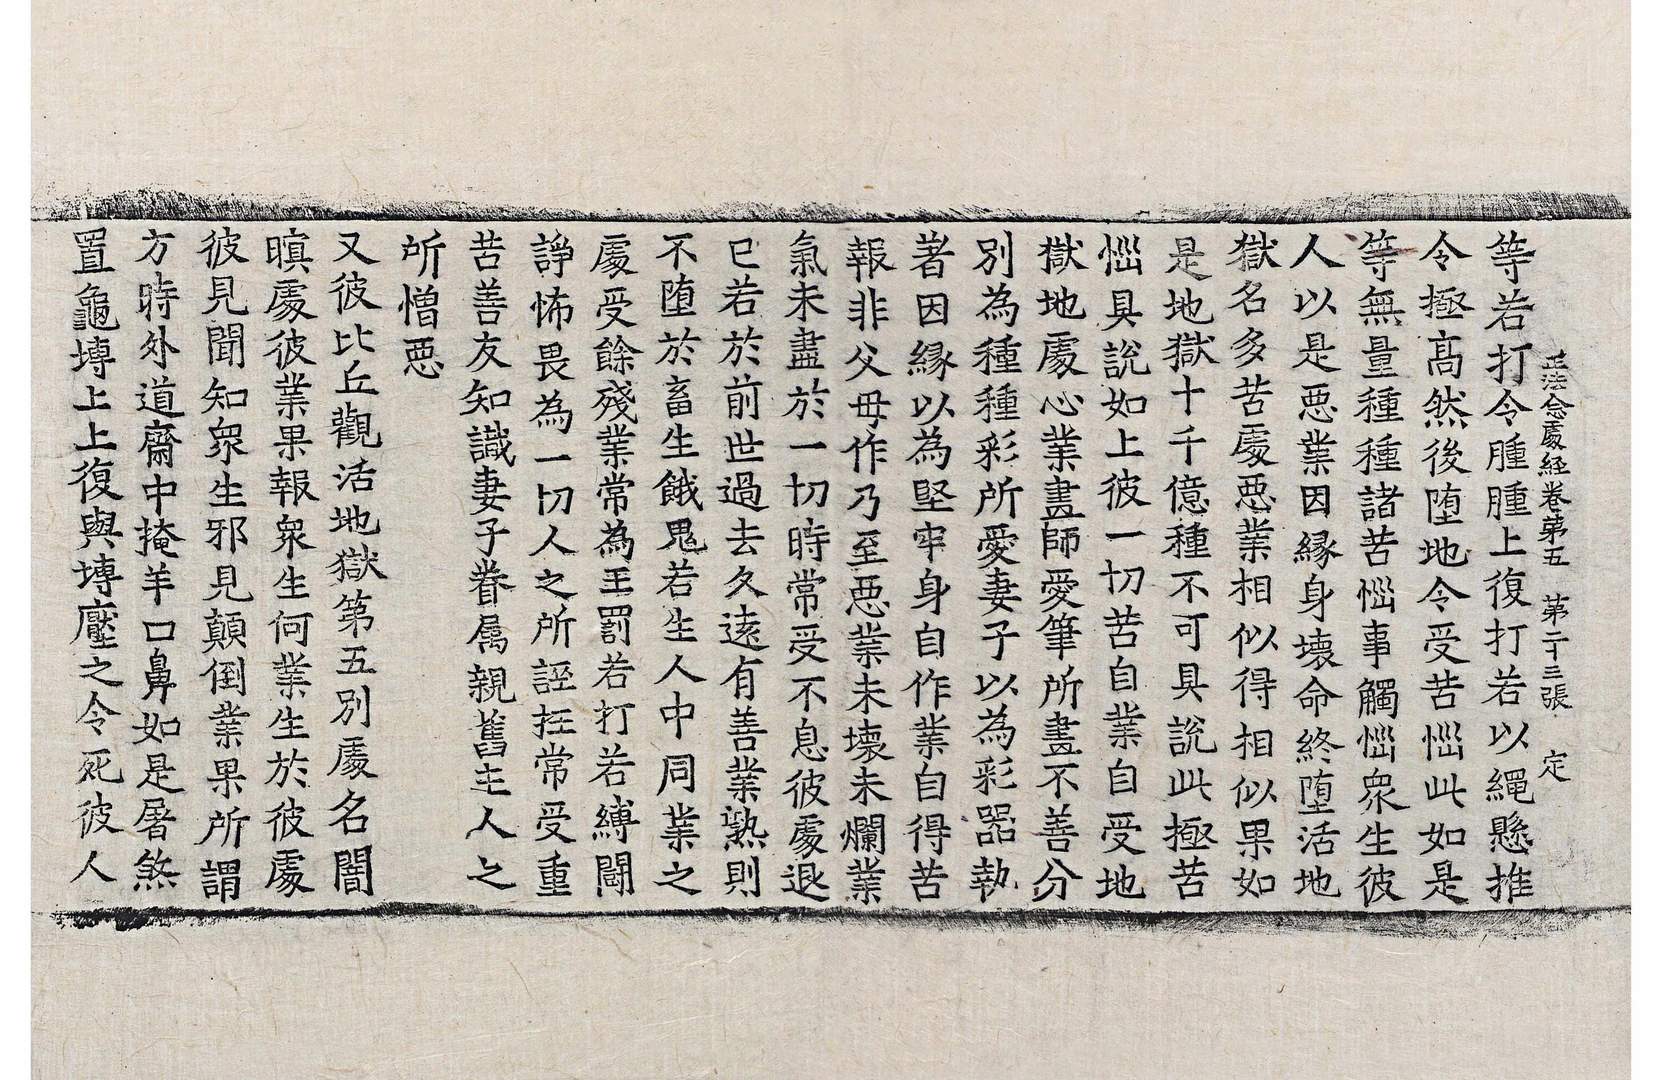 正法念處經卷第五 第二十三張 定
等若打令腫腫上復打若以繩懸推
令極高然後堕地令受苦惱此如是
等無量種種諸苦惱事觸惱衆生彼
人以是惡業因縁身壊命終堕活地
獄名多苦處惡業相似得相似果如
是地獄十千億種不可具說此極苦
惱具說如上彼一切苦自業自受地
獄地處心業畫師愛筆所畫不善分
別為種種彩所愛妻子以為彩器執
著因縁以為堅牢身自作業自得苦
報非父母作乃至惡業未壊未爛業
氣未盡於一切時常受不息彼處退
已若於前世過去久遠有善業熟則
不堕於畜生餓鬼若生人中同業之
處受餘殘業常為王罰若打若縛鬪
諍怖畏為一切人之所誣抂常受重
苦善友知識妻子眷属親舊主人之
所憎惡
又彼比丘觀活地獄第五別處名闇
瞋處彼業果報衆生何業生於彼處
彼見聞知衆生邪見顛倒業果所謂
方時外道齋中掩羊口鼻如是屠煞
置龜塼上上復與塼壓之令死彼人